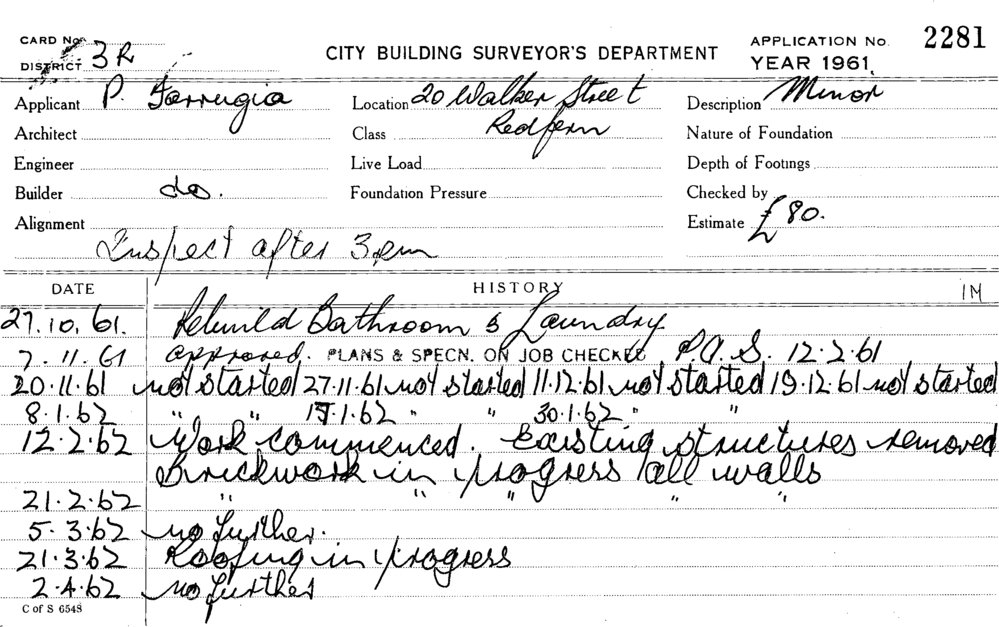 CARD No.
DISTRICT 3R
CITY BUILDING SURVEYOR'S DEPARTMENT
APPLICATION No. 2281
YEAR 1961
Applicant P. Farrugia
Location 20 Walker Street
Redfern
Description Minor
Architect
Class
Nature of Foundation
Engineer
Live Load
Depth of Footings
Builder do.
Foundation Pressure
Checked by
Alignment
Estimate £80.
Inspect after 3pm
DATE HISTORY 1M
27.10.61. Rebuild Bathroom & Laundry
7.11.61 approved. PLANS & SPECN. ON JOB CHECKED P.A.S. 12.2.61
20.11.61 not started 27.11.61 not started 11.12.61 not started 19.12.61 not started
8.1.62 " " 15.1.62 " " 30.1.62 " "
12.2.62 Work commenced. Existing structures removed
Brickwork in progress all walls
21.2.62 " " " " "
5.3.62 no further.
21.3.62 Roofing in progress
2.4.62 no further
C of S 6548